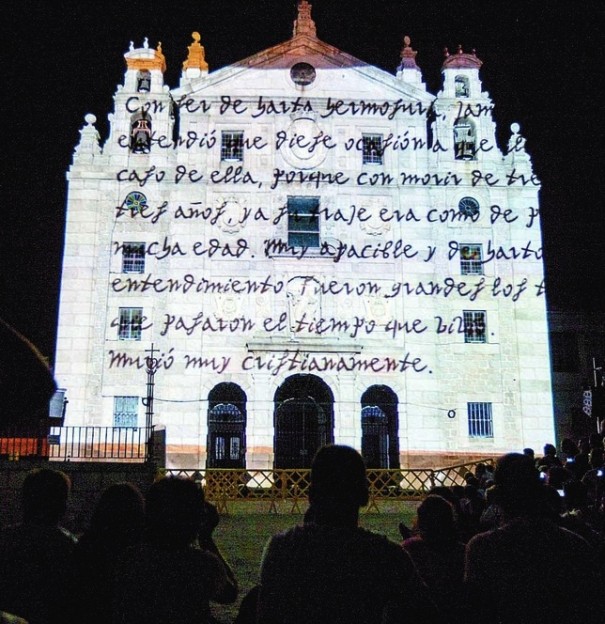 Con ser de harta hermosura, jam
entendió que diese ocasión a que
caso de ella, porque con morir de tre
tres años, ya su traje era como de p
mucha edad. Muy apacible y de harto
entendimiento fueron grandes los t
que pasaron el tiempo que
Murió muy cristianamente.